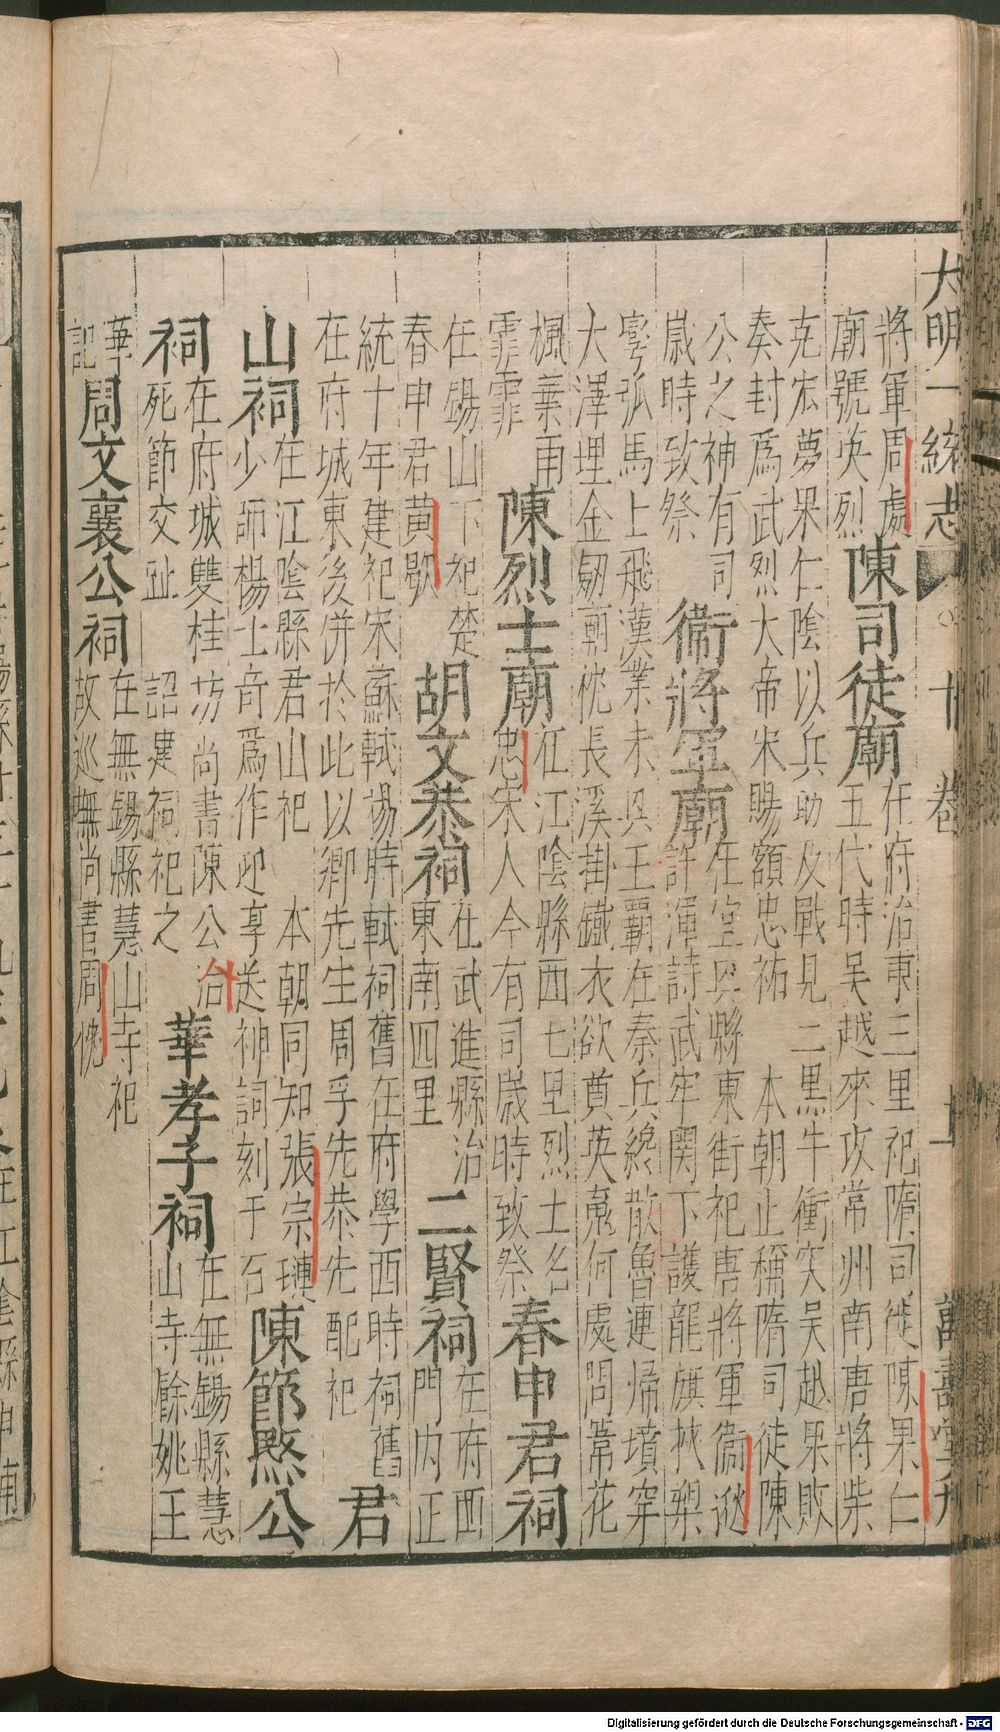 大明一統志 卷十 十 萬壽堂刋
將軍周處 陳司徒廟 在府治東三里祀隋司徒陳果仁
廟號英烈 五代時吳越來攻常州南唐將柴
克宏夢果仁陰以兵助及戰見二黑牛衝突吳越果敗
奏封爲武烈大帝宋賜額忠祐 本朝止稱隋司徒陳
公之神有司 衞將軍廟 在宜興縣東街祀唐將軍衞逖
歲時致祭 許渾詩武牢關下護龍旗挾槊
彎弧馬上飛漢業未興王覇在秦兵纔散魯連歸墳穿
大澤埋金劒廟枕長溪掛鐵衣欲奠英䰟何處問葦花
楓葉雨 陳烈士廟 在江陰縣西七里烈士名
霏霏 忠宋人今有司歲時致祭 春申君祠
在錫山下祀楚 胡文恭祠 在武進縣治 二賢祠 在府西
春申君黃歇 東南四里 門內正
統十年建祀宋蘇軾楊時軾祠舊在府學西時祠舊 君
在府城東後併於此以鄉先生周孚先恭先配祀
山祠 在江陰縣君山祀 本朝同知張宗璉 陳節愍公
少師楊士奇爲作迎享送神詞刻于石
祠 在府城雙桂坊尚書陳公洽 華孝子祠 在無錫縣慧
死節交趾 詔建祠祀之 山寺餘姚王
華 周文襄公祠 在無錫縣慧山寺祀
記 故巡撫尚書周忱
Digitalisierung gefördert durch die Deutsche Forschungsgemeinschaft - DFG